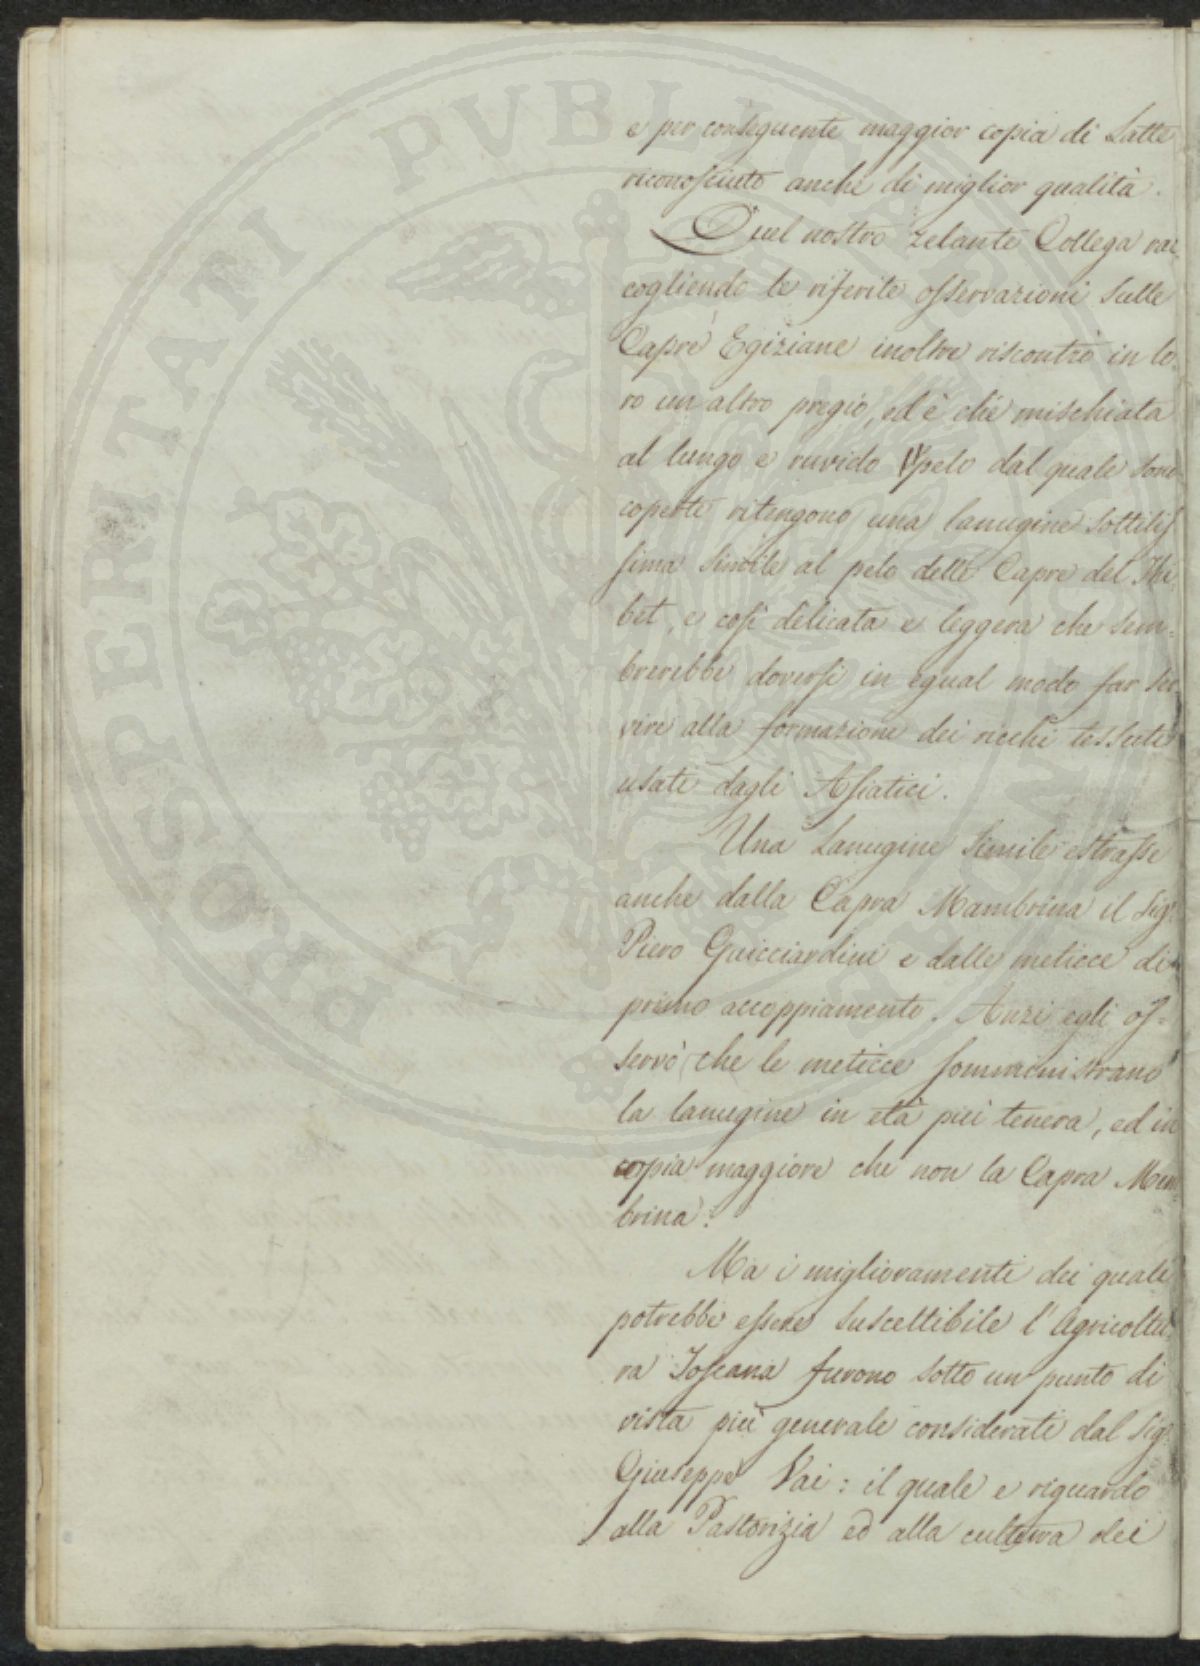 PROSPERITATI PVBLICAE
e per conseguente maggior copia di Latte
riconosciuto anche di miglior qualità.
Quel nostro zelante Collega rac
cogliendo le riferite osservazioni sulle
Capre Egiziane inoltre riscontrò in lo
ro un altro pregio, ed è che mischiata
al lungo e ruvido pelo dal quale sono
coperte ritengono una lanugine sottilis
sima simile al pelo delle Capre del Thi
bet, e così delicata e leggera che sem=
brerebbe doversi in egual modo far ser
vire alla formazione dei ricchi tessuti
usati dagli Asiatici.
Una Lanugine Simile estrasse
anche dalla Capra Mambrina il Sigr.
Piero Guicciardini e dalle meticce di
primo accoppiamento. Anzi egli os=
servò che le meticce somministrano
la lanugine in età più tenera, ed in
copia maggiore che non la Capra Mam
brina.
Ma i miglioramenti dei quali
potrebbe essere suscettibile l'Agricoltu
ra Toscana furono sotto un punto di
vista più generale considerati dal Sigr.
Giuseppe Vai: il quale e riguardo
alla Pastorizia ed alla cultura dei